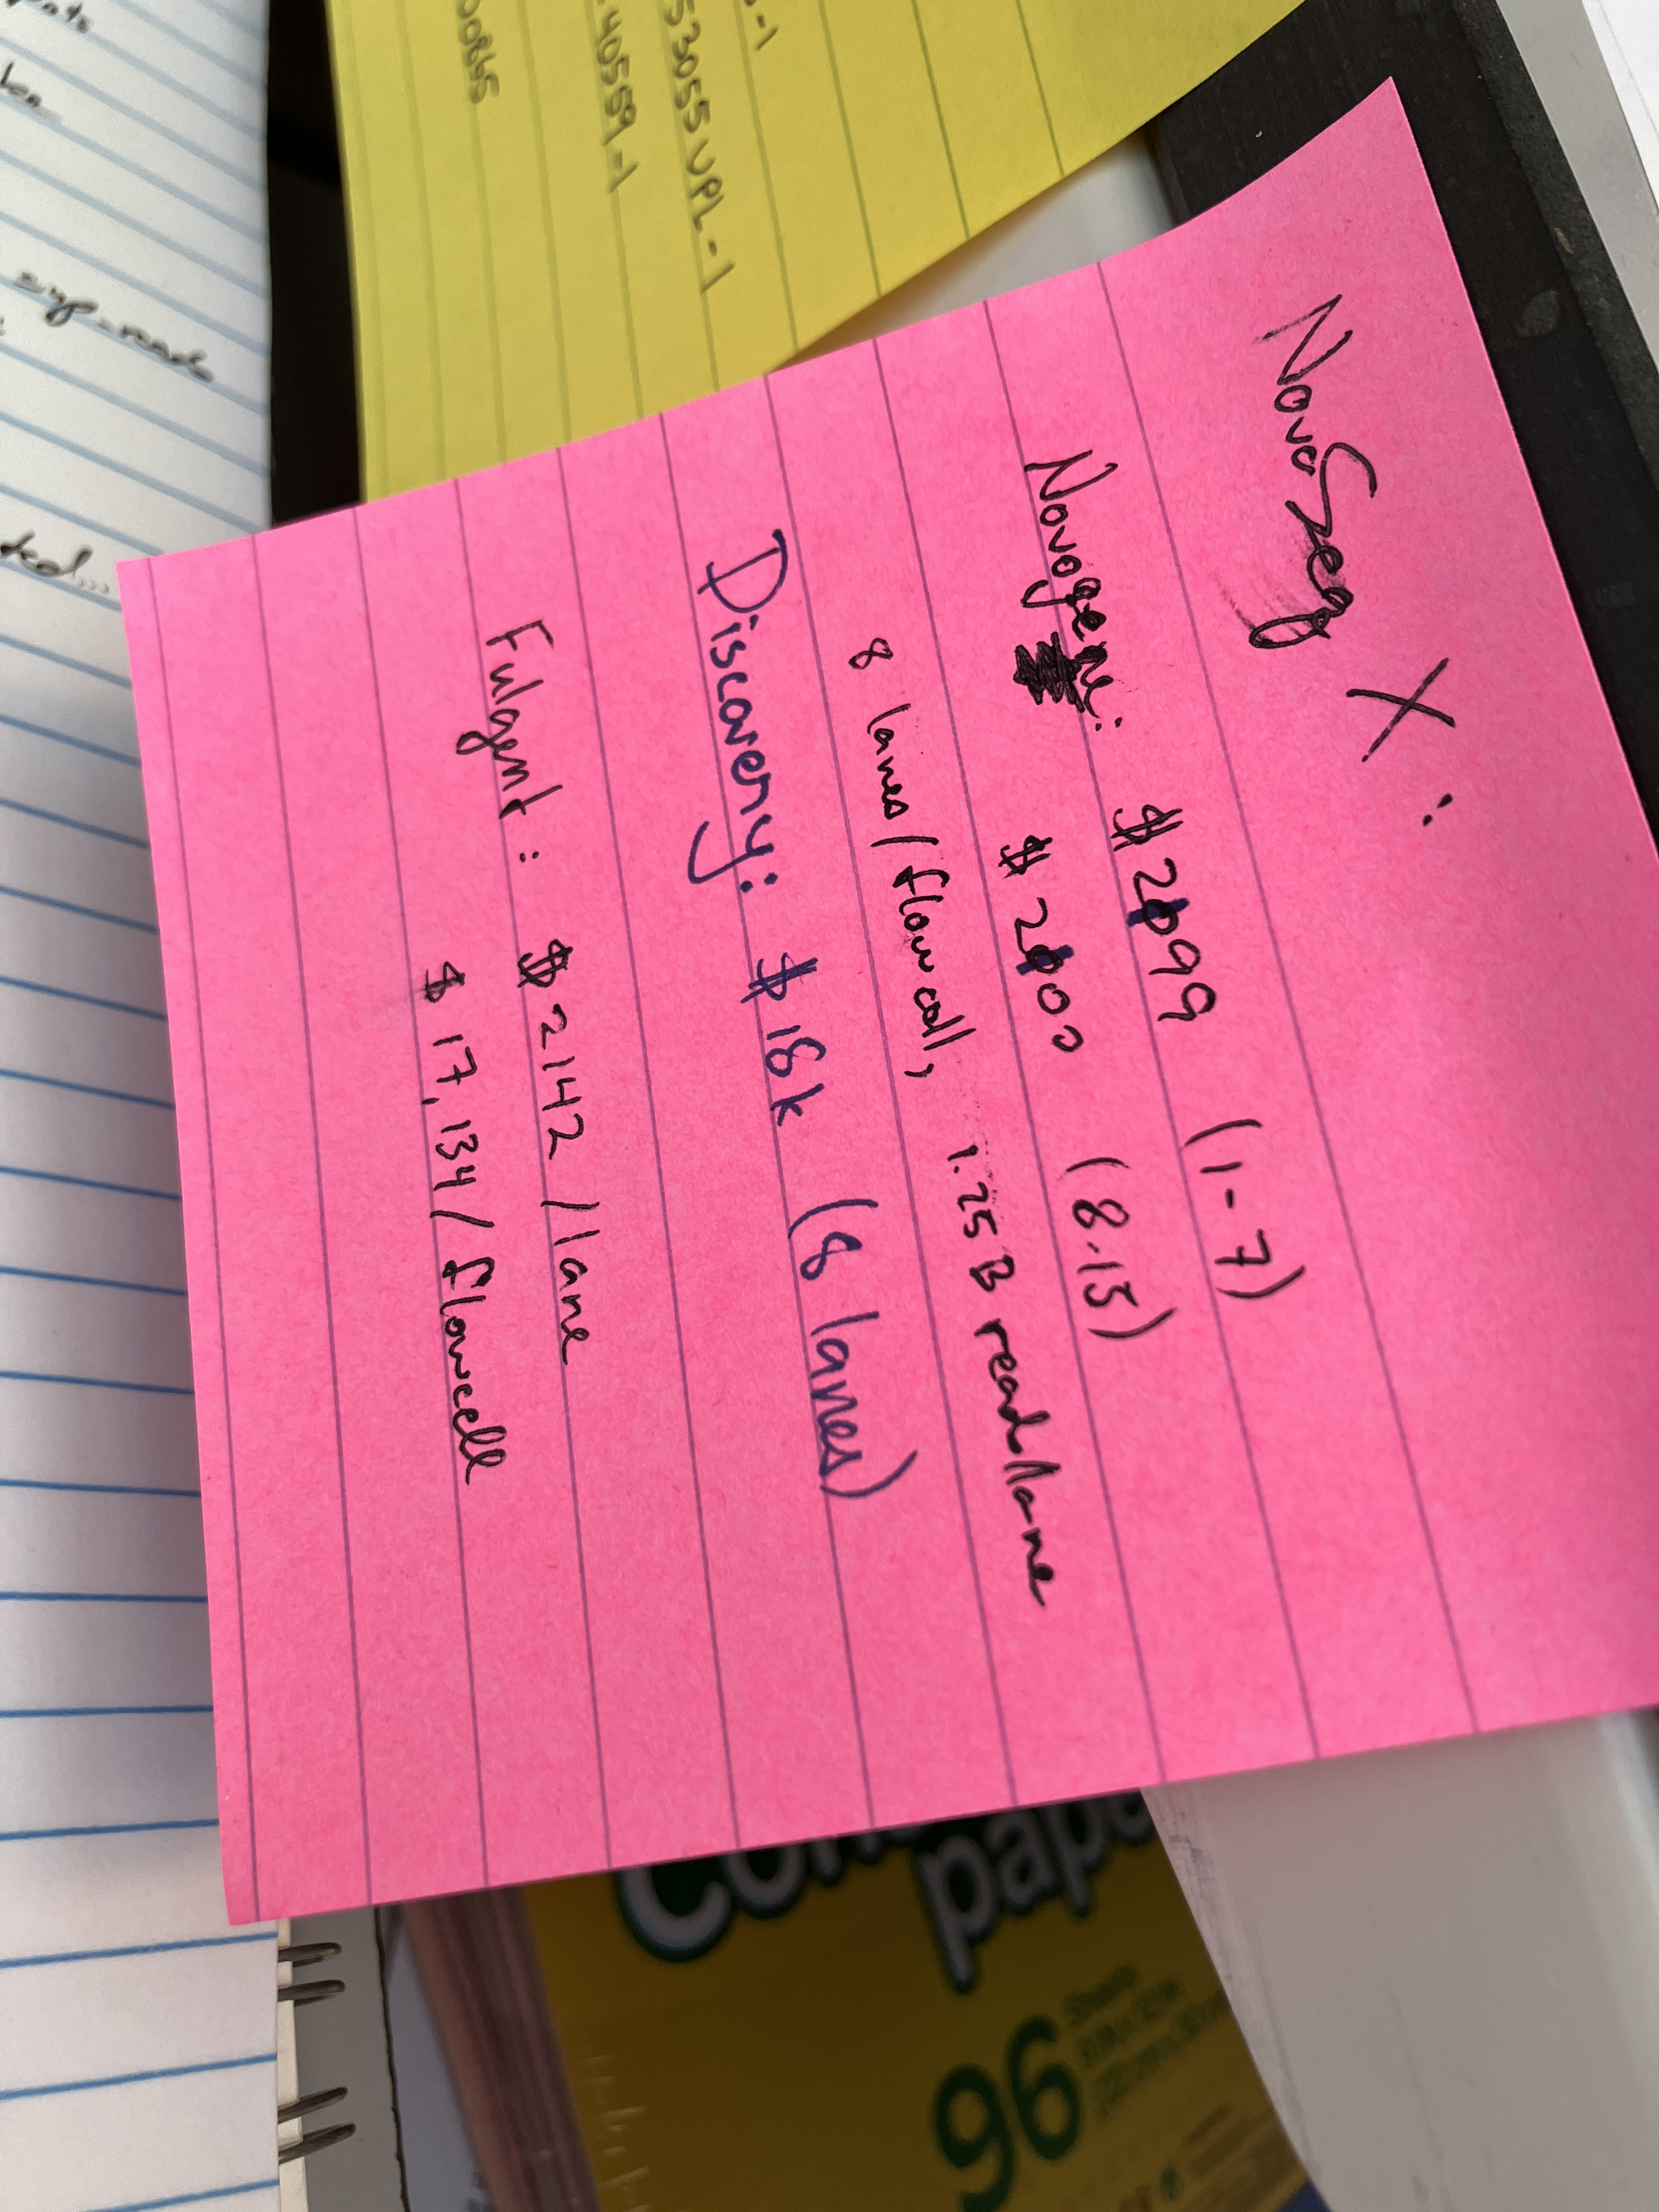 NovaSeq X :
Novogene: $2099 (1-7)
$2000 (8-15)
8 lanes/flow cell, 1.25 B reads/lane
Discovery: $18k (8 lanes)
Fulgent : $2142 /lane
$17,134/ flowcell
53055UPL-1
40559-1
avg. reads
paper
96